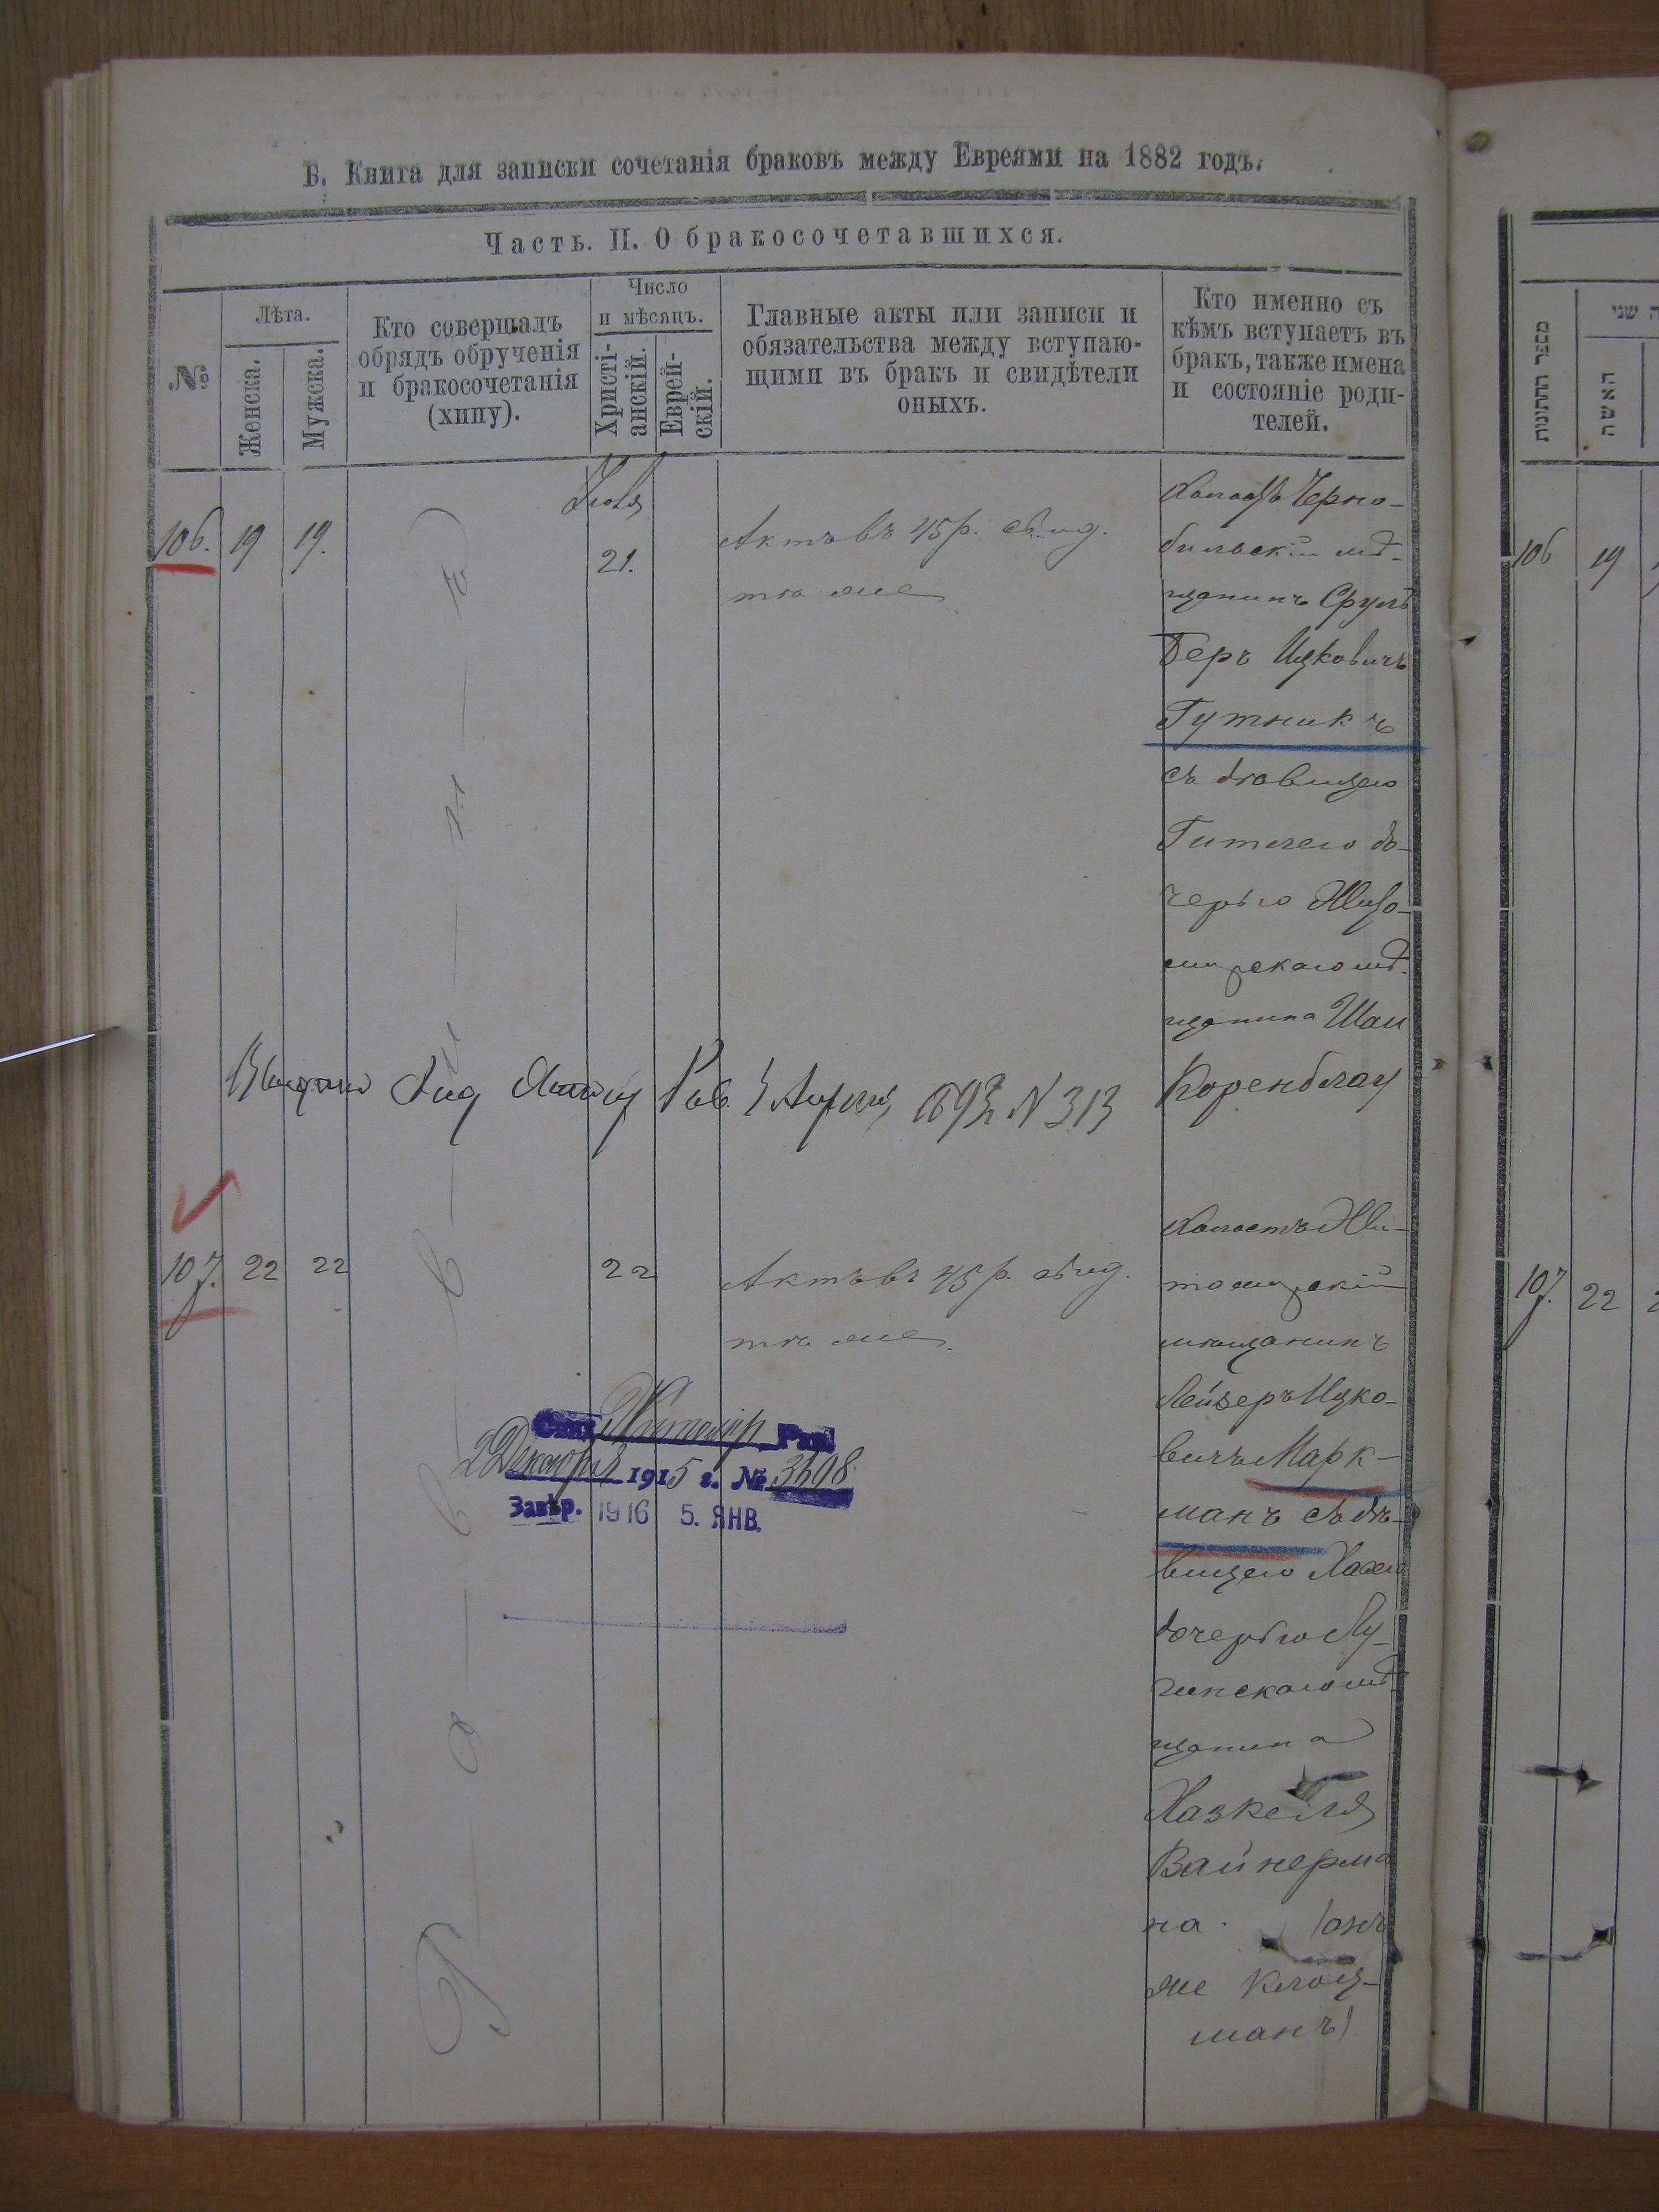 Б. Книга для записки сочетанія браковъ между Евреями на 1882 годъ.
Часть. II. О бракосочетавшихся.
№
Лѣта.
Женска.
Мужска.
Кто совершалъ
обрядъ обрученія
и бракосочетанія
(хипу).
Число
и мѣсяцъ.
Христі-
анскій.
Еврей-
скій.
Главные акты или записи и
обязательства между вступаю-
щими въ бракъ и свидѣтели
оныхъ.
Кто именно съ
кѣмъ вступаетъ въ
бракъ, также имена
и состояніе роди-
телей.
106. 19 19.
Раввинъ
Іюля
21.
Актъ въ 45 р. свид.
тѣ же
Холостъ Черно-
быльскій мѣ-
щанинъ Сруль
Беръ Ицковичъ
Гутникъ
съ дѣвицею
Гитлею до-
черью Жито-
мирскаго мѣ-
щанина
Коренблау
№ 313
107. 22 22
22
Актъ въ 45 р. свид.
тѣ же.
Холостъ Жи-
томирскій
мѣщанинъ
Лейзеръ Ицко-
вичъ Марк-
манъ съ дѣ-
вицею
дочерью Лу-
гинскаго мѣ-
щанина
Хазкеля
Вайнерма
на. (онъ
же Клоц-
манъ)
Житомір Рав.
2 Декабря 1915 г. № 3698
Завѣр. 1916 5. ЯНВ.
מספר החתונות
האשה
106 19
107. 22